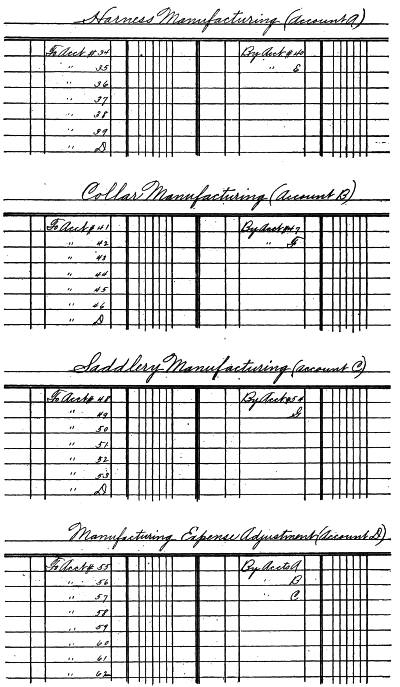 Harness Manufacturing (Account A)
To Acct #34 By Acct #40
" 35 " E
" 36
" 37
" 38
" 39
" D
Collar Manufacturing (Account B)
To Acct #41 By Acct #47
" 42 " F
" 43
" 44
" 45
" 46
" D
Saddlery Manufacturing (Account C)
To Acct #48 By Acct #54
" 49 G
" 50
" 51
" 52
" 53
" D
Manufacturing Expense Adjustment (Account D)
To Acct #55 By Accts A
" 56 B
" 57 " C
" 58
" 59
" 60
" 61
" 62